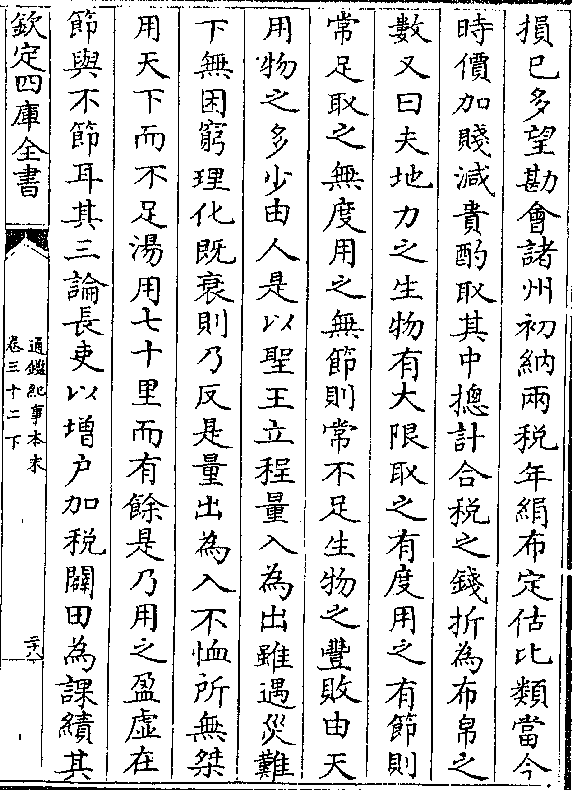 損已多望勘㑹諸州初納兩税年絹布定估比類當今
時價加賤減貴酌取其中摠計合税之錢折為布帛之
數又曰夫地力之生物有大限取之有度用之有節則
常足取之無度用之無節則常不足生物之豐敗由天
用物之多少由人是以聖王立程量入為出雖遇災難
下無困窮理化既衰則乃反是量出為入不恤所無桀
用天下而不足湯用七十里而有餘是乃用之盈虚在
節與不節耳其三論長吏以增户加税闢田為課績其
欽定四庫全書
通鑑紀事本末
卷三十二下